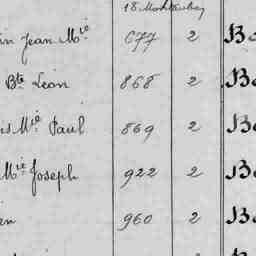 18 Montluçon
in Jean Mie 677 2 B
Bte Léon 868 2 B
is Mie Paul 869 2 B
Mie Joseph 922 2 B
en 960 2 B